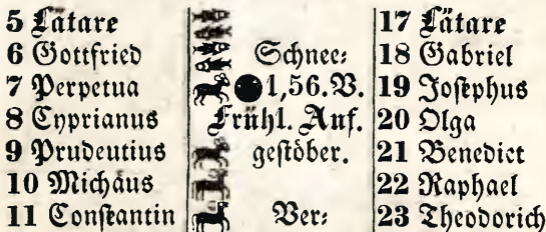 5 Lätare Schnee⸗ 17 Lätare
6 Gottfried 18 Gabriel
7 Perpetua 1,56.V. 19 Josephus
8 Cyprianus Frühl. Anf. 20 Olga
9 Prudentius gestöber. 21 Benedict
10 Michäus 22 Raphael
11 Constantin Ver⸗ 23 Theodorich